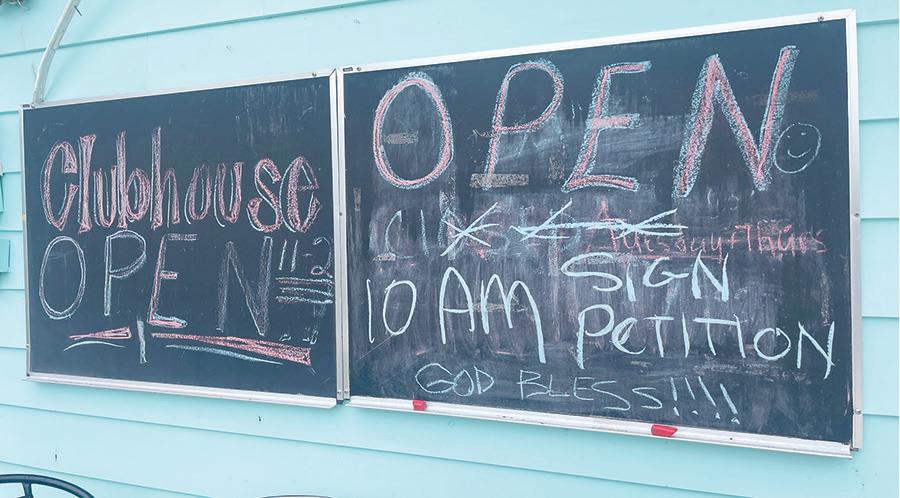 Clubhouse
OPEN 11-2
OPEN
Tuesday + Thurs
10 AM SIGN
PETITION
GOD BLESS!!!!